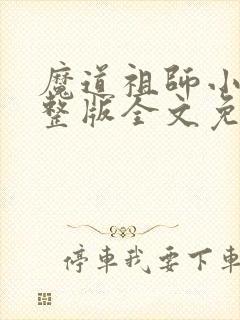 魔道祖師小
整版全文免
停車我要下車